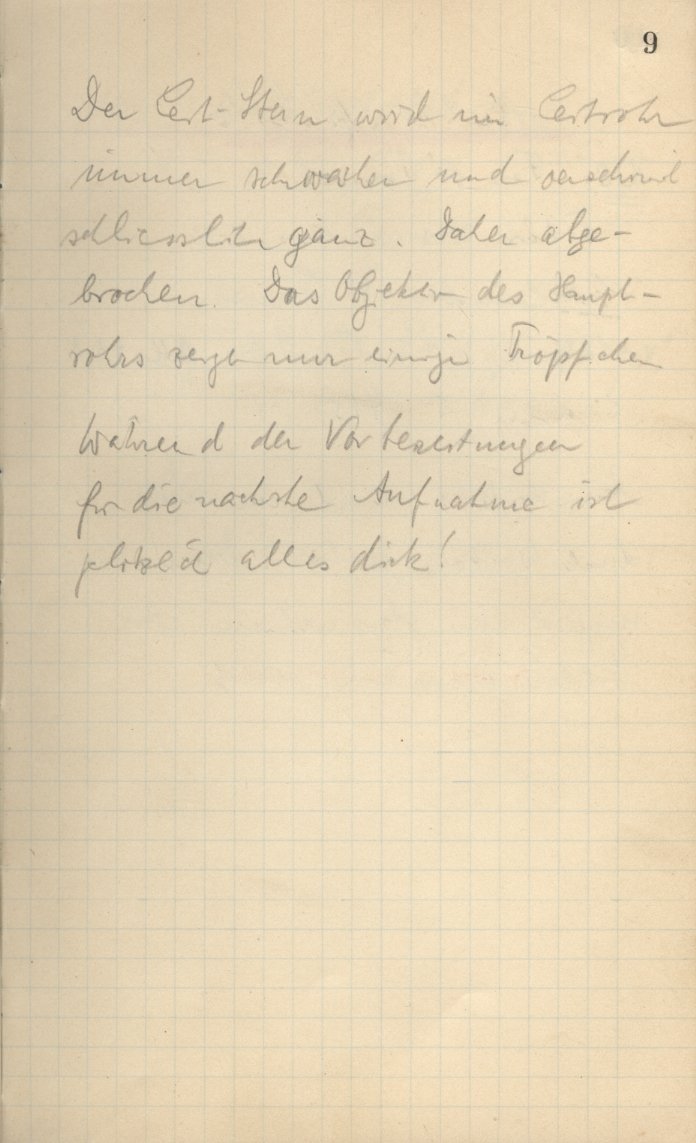 9
Der Leit-Stern wird im Leitrohr
immer schwächer und verschwind
schliesslich ganz. Daher abge-
brochen. Das Objektiv des Haupt-
rohrs zeigt nur einige Tröpfchen
Während der Vorbereitungen
für die nächste Aufnahme ist
plötzlich alles dick!